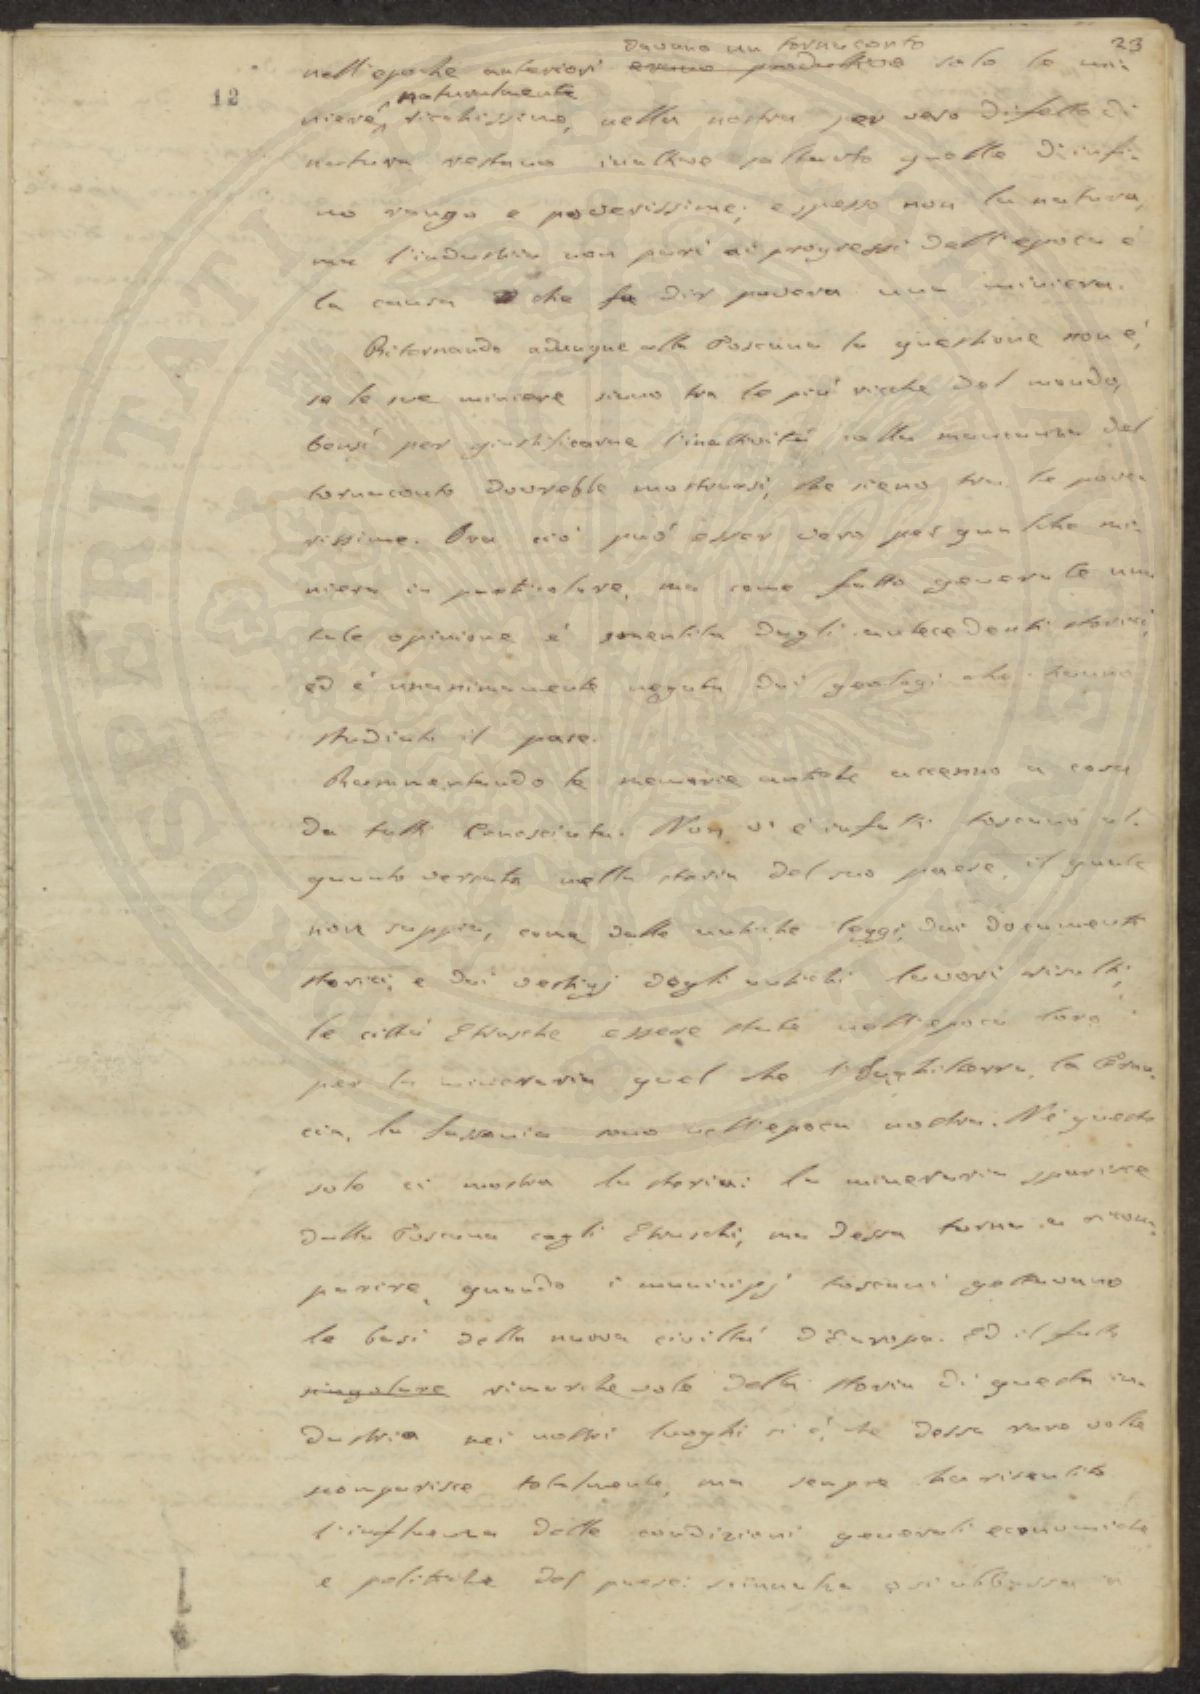 23
12
davano un tornaconto
nell'epoche anteriori erano produttive solo le mi-
naturalmente
niere ricchissime, nella nostra per vero difetto di
natura restano inattive soltanto quelle d'infi-
mo rango e poverissime; e spesso non la natura,
ma l'industria non pari ai progressi dell'epoca è
la causa che fa dir povera una miniera.
Ritornando adunque alla Toscana la questione non è,
se le sue miniere siano tra le più ricche del mondo,
bensì per giustificarne l'inattività colla mancanza del
tornaconto dovrebbe mostrarsi, che sieno tra le pove-
rissime. Ora ciò può esser vero per qualche mi-
niera in particolare, ma come fatto generale una
tale opinione è smentita dagli antecedenti storici,
ed è unanimamente negata dai geologi che hanno
studiato il paese.
Rammentando le memorie antiche accenno a cosa
da tutti conosciuta. Non vi è infatti toscano al-
quanto versato nella storia del suo paese, il quale
non sappia, come dalle antiche leggi, dai documenti
storici, e dai vestigj degli antichi lavori risulti,
le città Etrusche essere state nell'epoca loro
per la mineraria quel che l'Inghilterra, la Fran-
cia, la Sassonia sono nell'epoca nostra. Nè questo
solo ci mostra la storia: la mineraria sparisce
dalla Toscana cogli Etruschi, ma dessa torna a ricom-
parire, quando i municipj toscani gettavano
le basi della nuova civiltà d'Europa. Ed il fatto
singolare rimarchevole della storia di questa in-
dustria nei nostri luoghi si è, che dessa rare volte
scomparisce totalmente, ma sempre ha risentito
l'influenza delle condizioni generali economiche
e politiche del paese: s'innalza o si abbassa a
PROSPERITATI PUBLICAE AUGENDAE